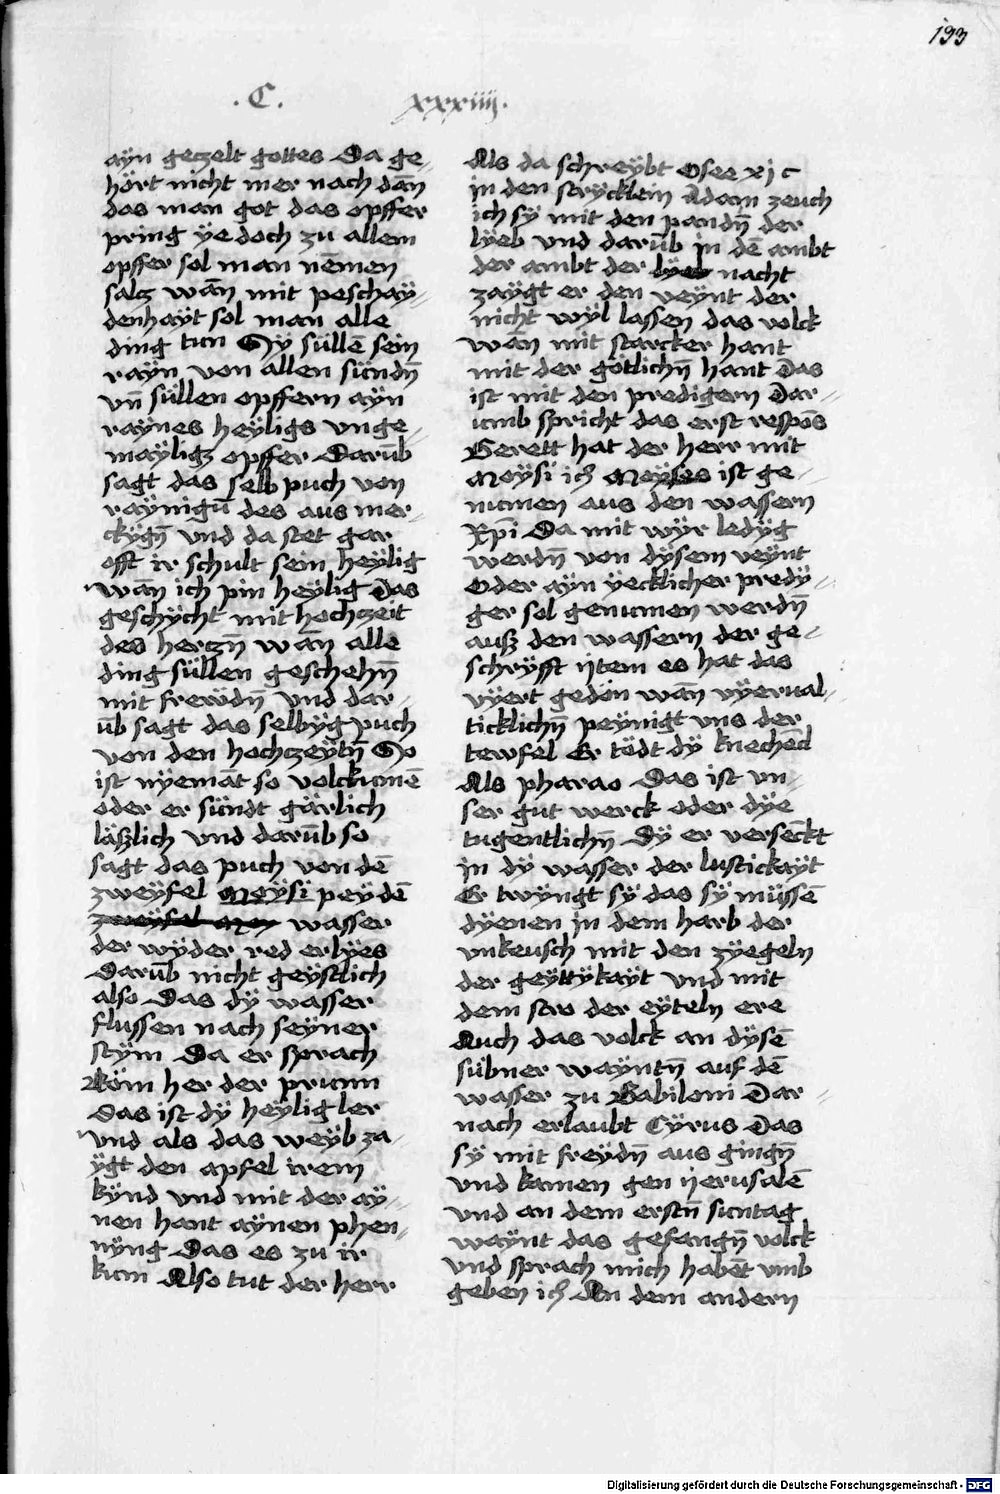 193
.C. xxxiiij.
aÿn geczelt gottes Da ge-
hört nicht mer nach dān
das man got das opffer
pring ÿe doch zu allem
opffer sol man nēmen
salcz wān mit peschaÿ-
denhaÿt sol man alle
ding tun Sÿ süllē sein
raÿn von allen sündn̄
vn̄ süllen opffern aÿn
raÿnes heÿligs vnge-
maÿligz opffer Darūb
sagt das selb puch von
raÿnigū des aus mer-
ckÿgn̄ vnd da stet gar
offt ir schult sein heÿlig
wān ich pin heÿlig Das
geschÿcht mit hochzeit
des herczn̄ wān alle
ding süllen geschehn̄
mit frewdn̄ vnd dar-
ūb sagt das selbÿg puch
von den hochzeÿtn̄ So
ist nÿemāt so volckumē
oder er sündt gärlich
läßlich vnd darūb so
sagt das puch von dē
zweÿfel Moÿsi peÿ dē
zweÿfel moy wasser
der wÿder red erlÿes
Darūb nicht geÿstlich
also Das dÿ wasser
flussen nach seÿner
stÿm Da er sprach
Köm her der prunn
Das ist dÿ heÿlig ler
vnd als das weÿb za-
ÿgt den apfel irem
kÿnd vnd mit der aÿ-
nen hant aÿnen phen-
nÿng Das es zu ir
kum Also tut der herr
Als da schreÿbt Osee xj c
jn den strÿcklein Adam zeuch
ich sÿ mit den pandn̄ der
lÿeb vnd darūb jn dē ambt
der ambt der lÿeb nacht
zaÿgt er den veÿnt der
nicht wÿl lassen das volck
wān mit starcker hant
mit der götlichn̄ hant Das
ist mit den predigern Dar-
umb spricht das erst respōs
Gerett hat der herr mit
Moÿsi ich Moÿses ist ge-
numen aus den wassern
Xp̄i Da mit wÿr ledÿg
werdn̄ von dÿsem veÿnt
Oder aÿn ÿecklicher predÿ-
ger sol genumen werdn̄
auß den wassern der ge-
schrÿfft ijtem es hat das
vÿert gedön wān vÿerual-
ticklichn̄ peÿnigt vns der
tewfel Er tödt dÿ knechēd
Als pharao Das ist vn-
ser gut werck oder dÿe
tugentlichn̄ Dÿ er versēckt
jn dÿ wasser der lustickaÿt
Er twÿngt sÿ das sÿ müssē
dÿenen jn dem harb der
vnkeusch mit den zÿegeln
der geÿttÿkaÿt vnd mit
dem stro der eÿteln ere
Auch das volck an dÿsē
sübner waÿntn̄ auf dē
wasser zu Babiloni Dar-
nach erlaubt Cÿrus Das
sÿ mit freÿdn̄ aus gingn̄
vnd kamen gen ijerusalē
vnd an dem erstn̄ suntag
waÿnt das gefangn̄ volck
vnd sprach mich habēt vmb
geben ich An dem andern
Digitalisierung gefördert durch die Deutsche Forschungsgemeinschaft - DFG